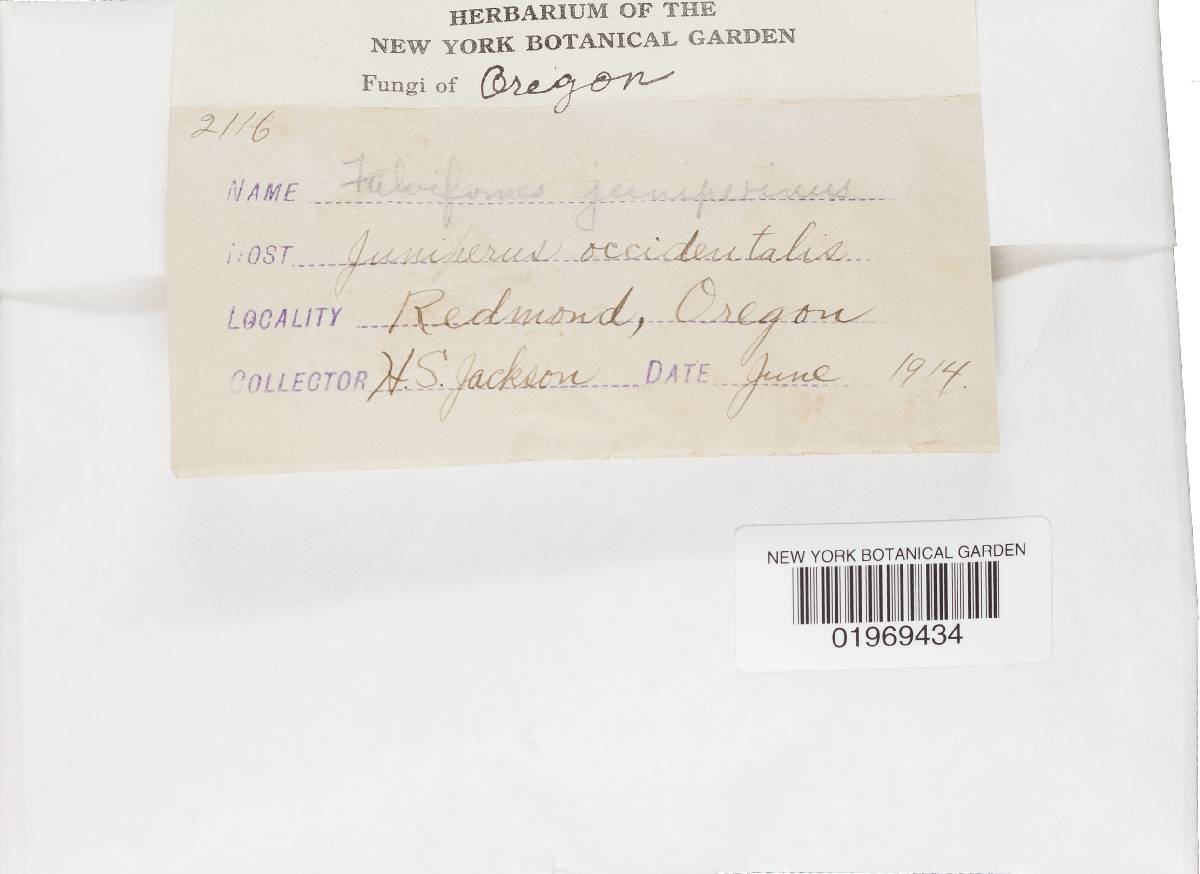 HERBARIUM OF THE
NEW YORK BOTANICAL GARDEN
Fungi of Oregon
2116
NAME Fulvifomes juniperinus
HOST Juniperus occidentalis
LOCALITY Redmond, Oregon
COLLECTOR H.S. Jackson DATE June 1914.
NEW YORK BOTANICAL GARDEN
01969434